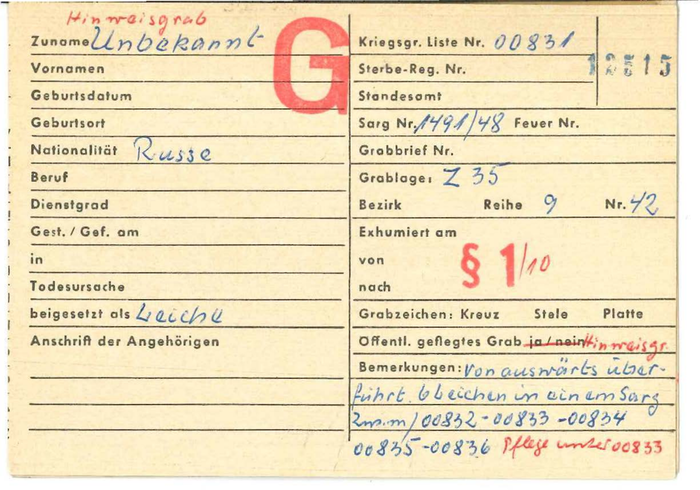 Hinweisgrab
Zuname Unbekannt
Vornamen
Geburtsdatum
Geburtsort
Nationalität Russe
Beruf
Dienstgrad
Gest. / Gef. am
in
Todesursache
beigesetzt als Leiche
Anschrift der Angehörigen
G
Kriegsgr. Liste Nr. 00831
12515
Sterbe-Reg. Nr.
Standesamt
Sarg Nr. 1491/48 Feuer Nr.
Grabbrief Nr.
Grablage: Z 35
Bezirk Reihe 9 Nr. 42
Exhumiert am
von
nach
§ 1/10
Grabzeichen: Kreuz Stele Platte
Öffentl. gepflegtes Grab ja / nein Hinweisgr.
Bemerkungen: von auswärts über-
führt. 6 Leichen in einem Sarg
Zus.m/00832-00833-00834
00835-00836 Pflege unter 00833